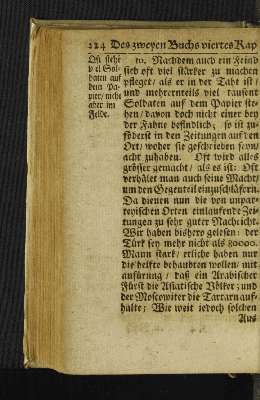 224 Des zweyen Buchs viertes Kap
Oft stehe
viel Sol-
daten auf
dem Pa-
pier/ nicht
aber im
Felde.
10. Nachdem auch ein Feind
sich oft viel stärker zu machen
pfleget/ als er in der Taht ist/
und mehrernteils viel tausent
Soldaten auf dem Papier ste-
hen/ davon doch nicht einer bey
der Fahne befindlich; so ist zu-
föderst in den Zeitungen auf den
Ort/ woher sie geschrieben seyn/
acht zuhaben. Oft wird alles
grösser gemacht/ als es ist: Oft
verhälet man auch seine Macht/
um den Gegenteil einzuschläfern.
Da dienen nun die von unpar-
teyischen Orten einlaufende Zei-
tungen zu sehr guter Nachricht.
Wir haben bishero gelesen: der
Türk sey mehr nicht als 80000.
Mann stark/ etliche haben nur
die helfte behaubten wollen/ mit
anfürung/ daß ein Arabischer
Fürst die Asiatische Völker; und
der Moscowiter die Tartarn auf-
halte; Wie weit iedoch solchen
Aus